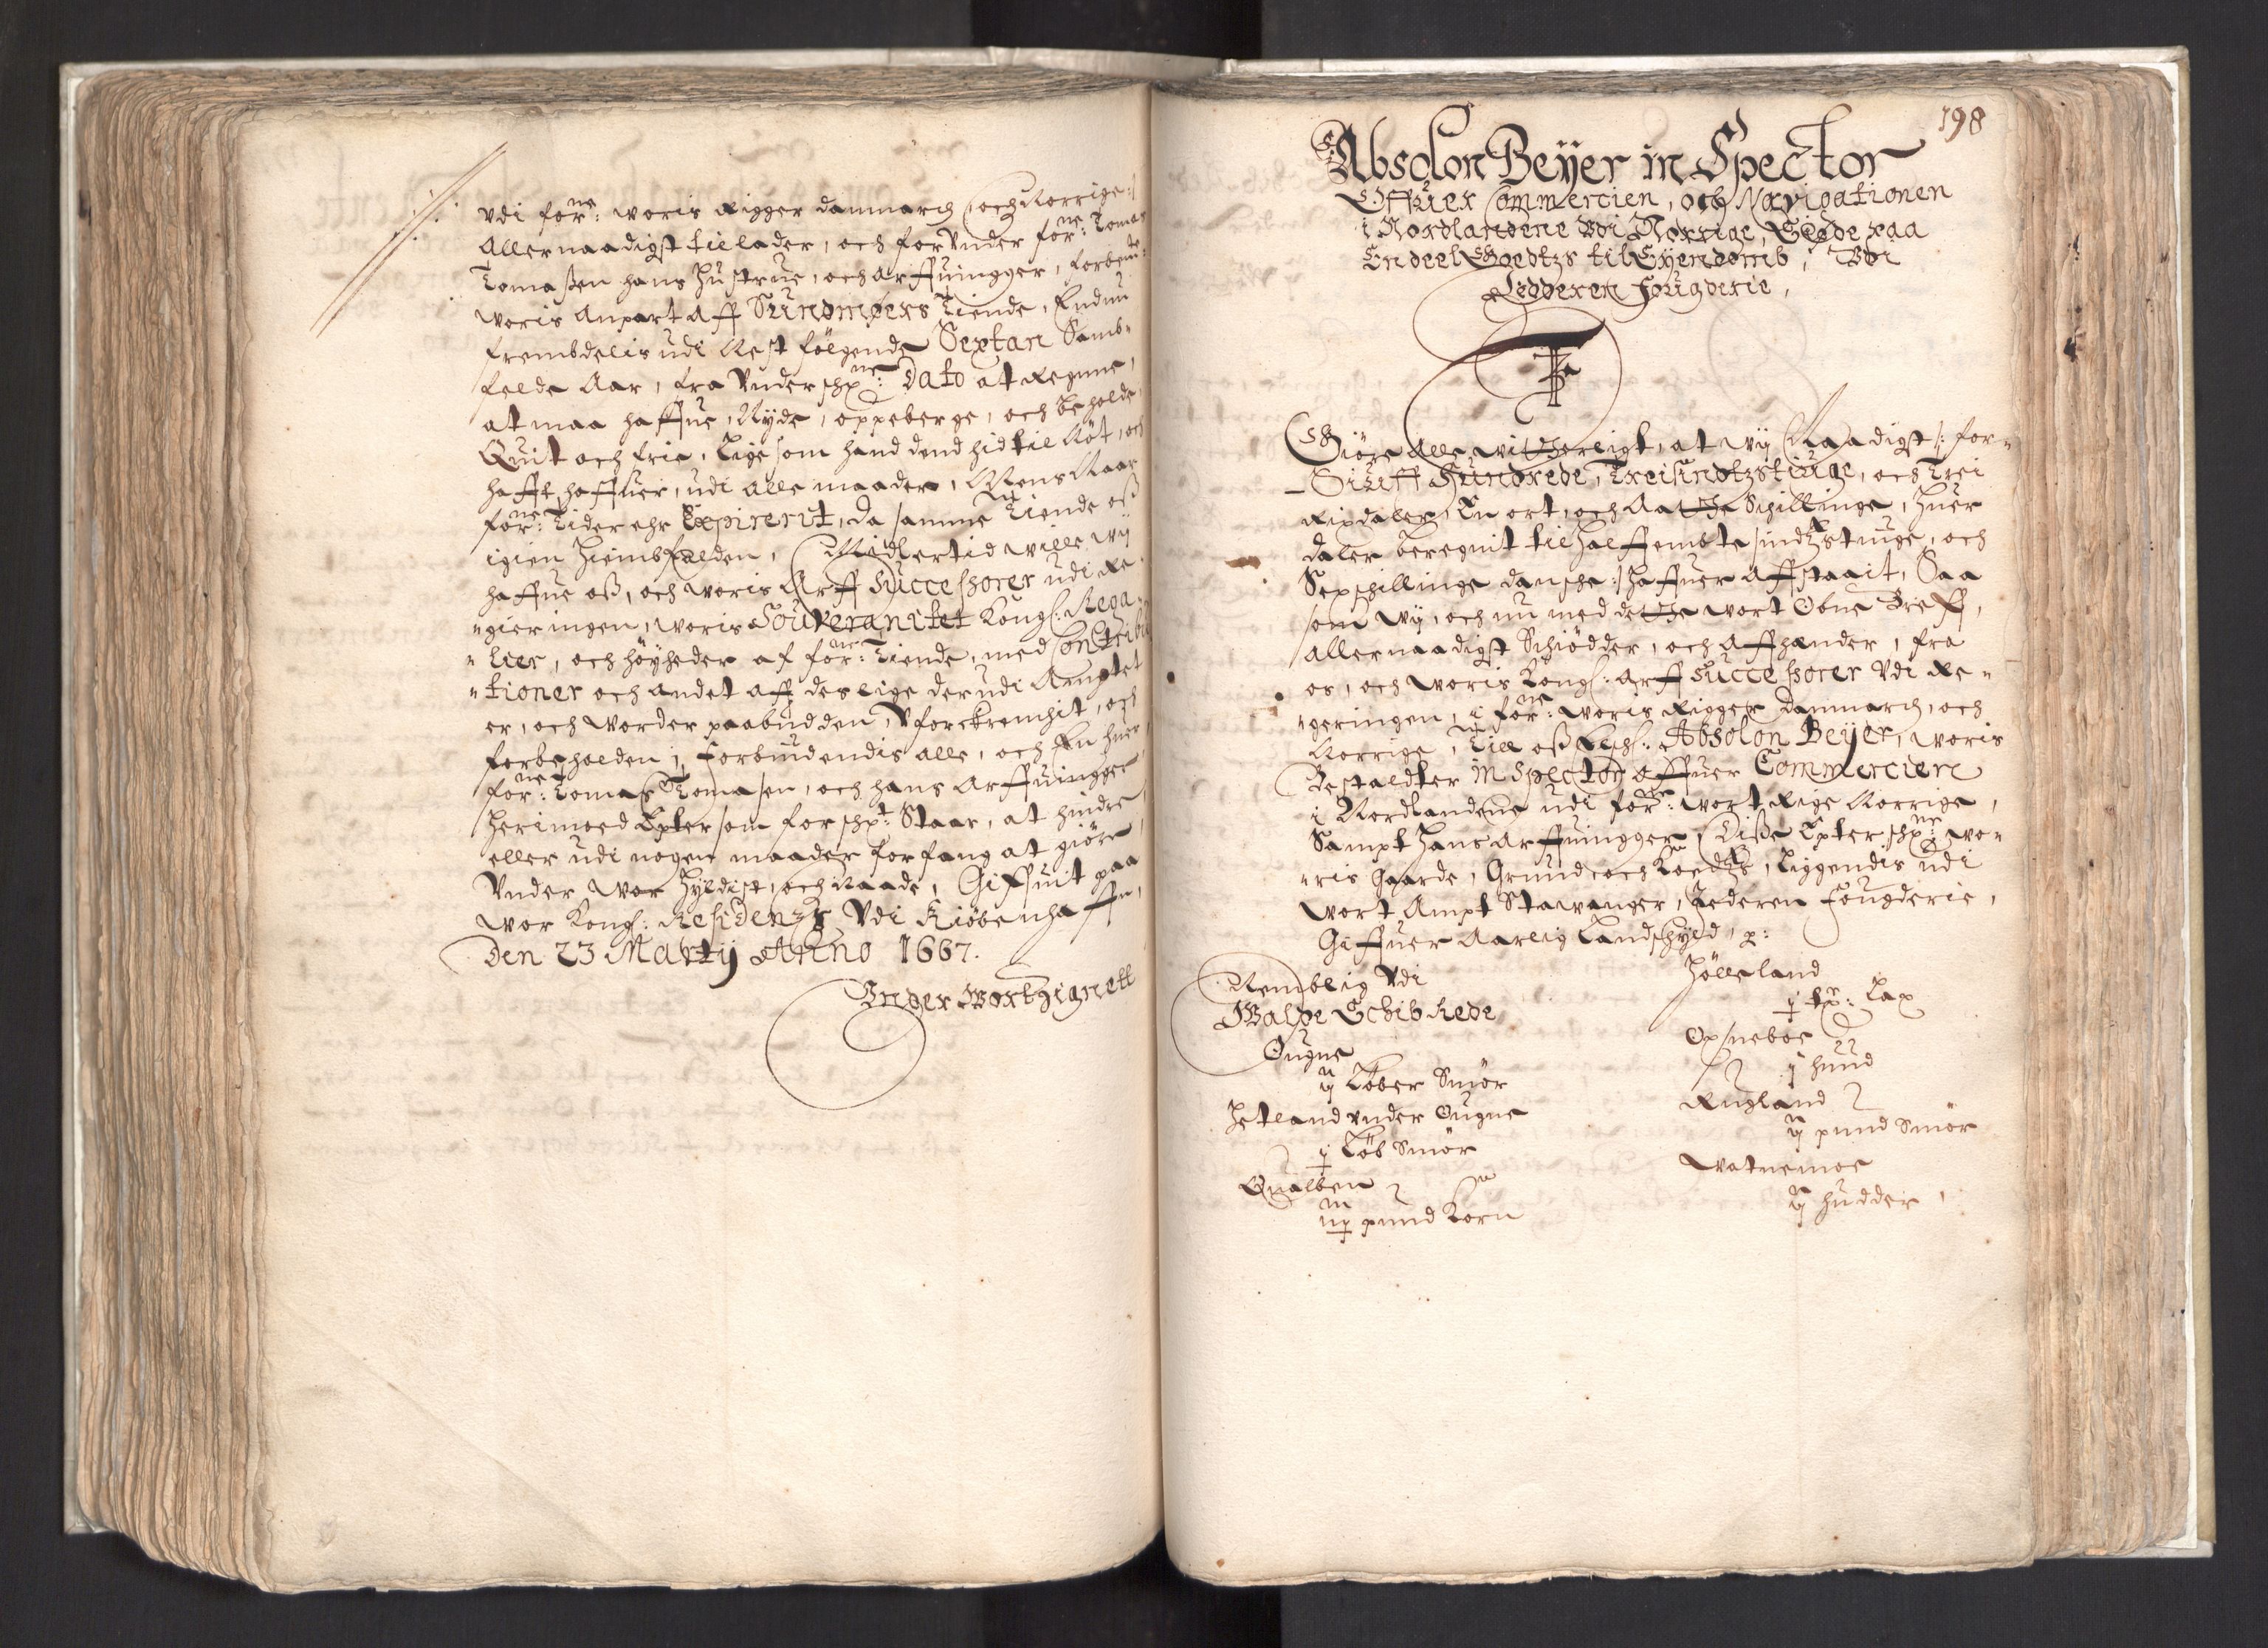 vdi for:ne woris Rigger danmarch och Norrige :/
Allernaadigst tillader, och forunder for:ne Tomas
Tomaßen hans hustrue, och arffuingger, forbem:te
woris anpart aff Sundmørs Tiende, Endnu
frembdelis udi Nest følgende Sextan Samb-
felde Aar, fra Underschr:ne Dato at Regnne,
at maa haffue, Nyde, oppeberge, och beholde
Quit och frie, Lige som hand dend hid til Nøt, och
hafft haffuer, udi alle maader, Mens Naar
for:ne Tider ehr Expirerit, da samme Tiende oß
igien hiembfalden, Midlertid wille wij
haffue oß, och woris Arff Successorer udi Re-
-gieringen, woris Souveranitet Kongl: Rega-
-lier, och høyheder af for:ne Tiende, med Contribu
-tioner och andet aff deslige derudi
er, och worder paabudden, Uforkrenchit, och
forbeholden; Forbiudendis alle, och En huer
for:ne Tomas Tomasen, och hans Arffuingger
herimoed Epter som forschr:t Staar, at hindre
eller udi nogen maader forfang at giöre,
Under Wor Hyldist, och Naade, Giffuit paa
wor Kongl: Residentz Udi Kiöbenhaffn,
Den 23 Martij Anno 1667.
Under Wort Zignett
198
Absolon Beÿer in Spector
Offuer Commercien, och Navigationen
i Nordlandene Vdi Norrige, Skiøde paa
En deel Goedtzs til Eÿendomb, Vdi
Jedderen Fougderie,
F 3
Giöre Alle witterligt, at wij Naadigst /: for
Siuff Hundrede, Treisindtzstiuge, och Trei
Rixdaler, En ort, och Aatthe Schillinge, Huer
daler beregnit til halffembtesindtzstiuge, och
Sex schillinge dansche :/ haffuer Affstaait, Saa
som wij, och nu med dette wort Obne Breff,
allernaadigst Schiödder, och Affhænder, fra
os, och woris Kongl: Arff Successorer Vdi Re-
-geringen, i for:ne woris Rigger Danmarch, och
Norrige, Till oß Elschl: Absolon Beÿer, woris
Bestaldter in Spector offuer Commercien
i Nordlandene udi for:ne wort Rige Norrige,
Sampt hans Arffuingger, Diße Epterschr:ne wo-
-ris Gaarde, Grund och Goedtzs, liggendis udi
wort Ampt Stawanger, Jederen Fougderie,
Giffuer Aarlig Landschyld,
Nemblig Vdi
Walde Schibrede
Ougne
ij Løber Smör
Hetland under Ougne
j Løb Smör
Qualben
iij pund Korn
Hölleland
Lax
Opsneboe
j hund
Rugland
ij pund Smör
Watnemoe
ij hudder,